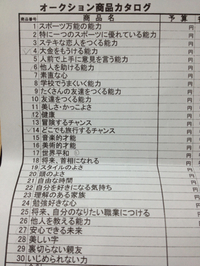 オークション商品カタログ
商品番号 商品名 予算
1 スポーツ万能の能力 円
2 特に一つのスポーツに優れている能力 円
3 ステキな恋人をつくる能力 円
4 大金をもうける能力 円
5 人前で上手に意見を言う能力 円
6 他人を助ける能力 円
7 素直な心 円
8 学校でうまくいく能力 円
9 たくさんの友達をつくる能力 円
10 友達をつくる能力 円
11 美しさ・かっこよさ 円
12 健康 円
13 冒険するチャンス 円
14 どこでも旅行するチャンス 円
15 音楽的才能 円
16 美術的才能 円
17 世界平和 円
18 将来、首相になれる 円
19 スタイルのよさ 円
20 頭のよさ
21 自由な時間
22 自分を好きになる気持ち
23 理解のある家族
24 勉強好きな心
25 将来、自分のなりたい職業につける
26 他人を教える能力
27 安心できる未来
28 美しい字
29 裏切らない親友
30 いじめられない力